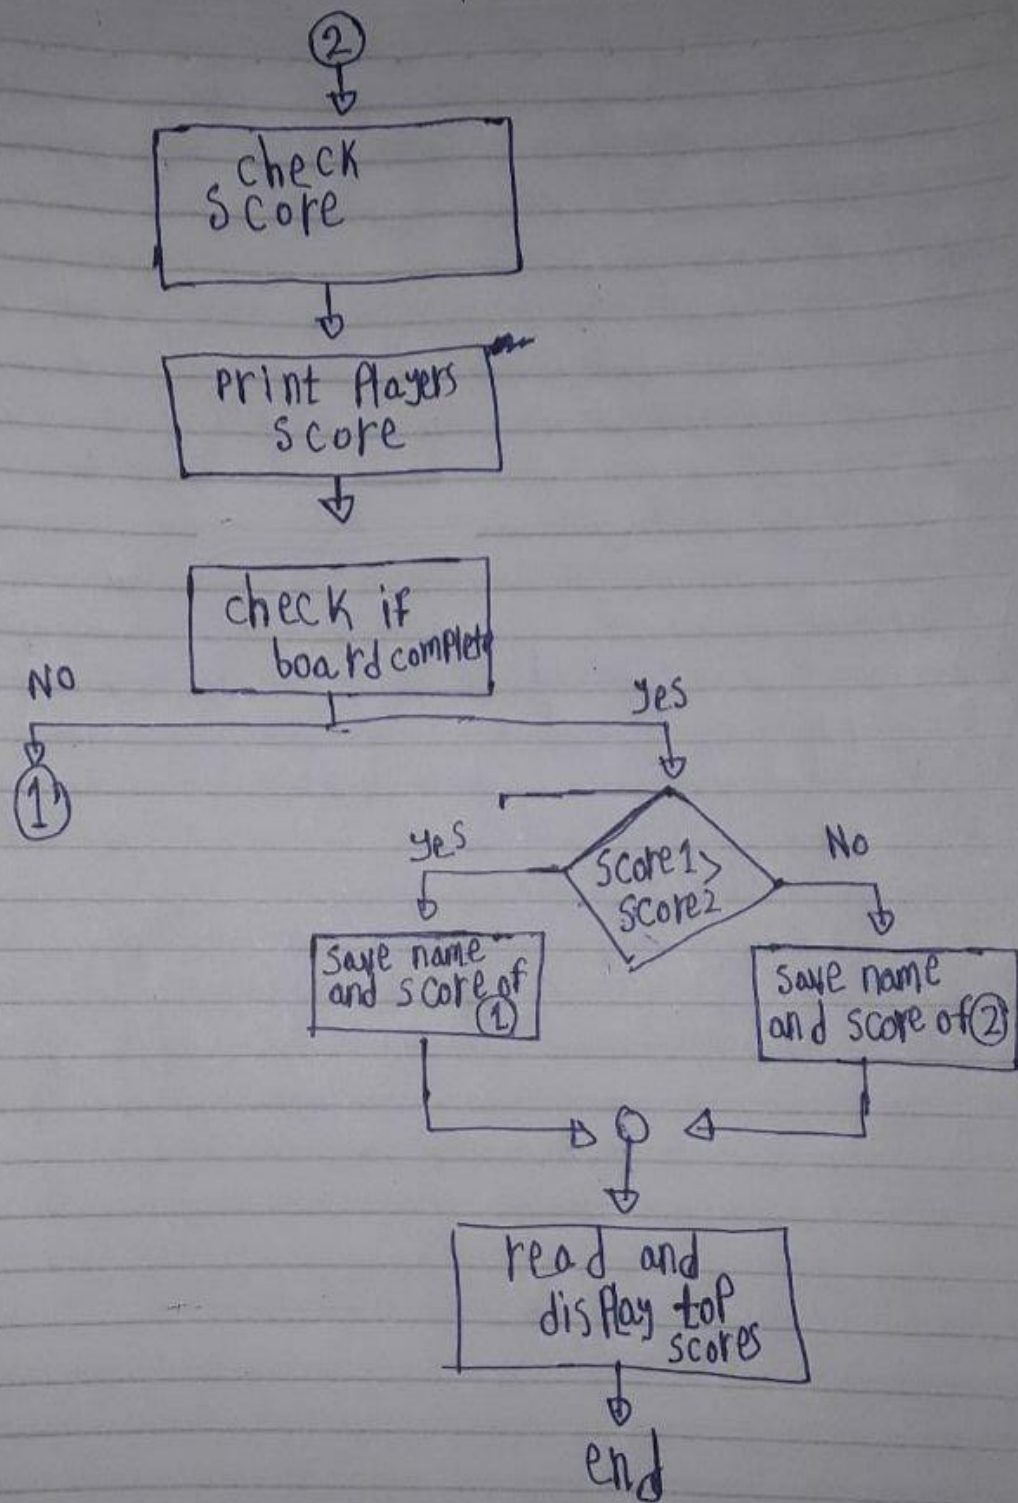 2
check
score
print Players
score
check if
board complete
NO
yes
1
yes
score1>
score2
No
save name
and score of
1
save name
and score of 2
read and
display top
scores
end